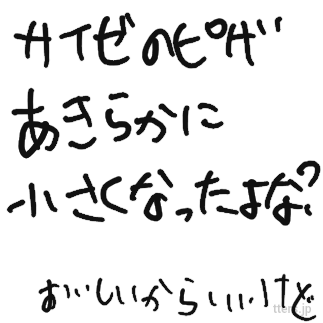 サイゼのピザ
あきらかに
小さくなったよな?
おいしいからいいけど